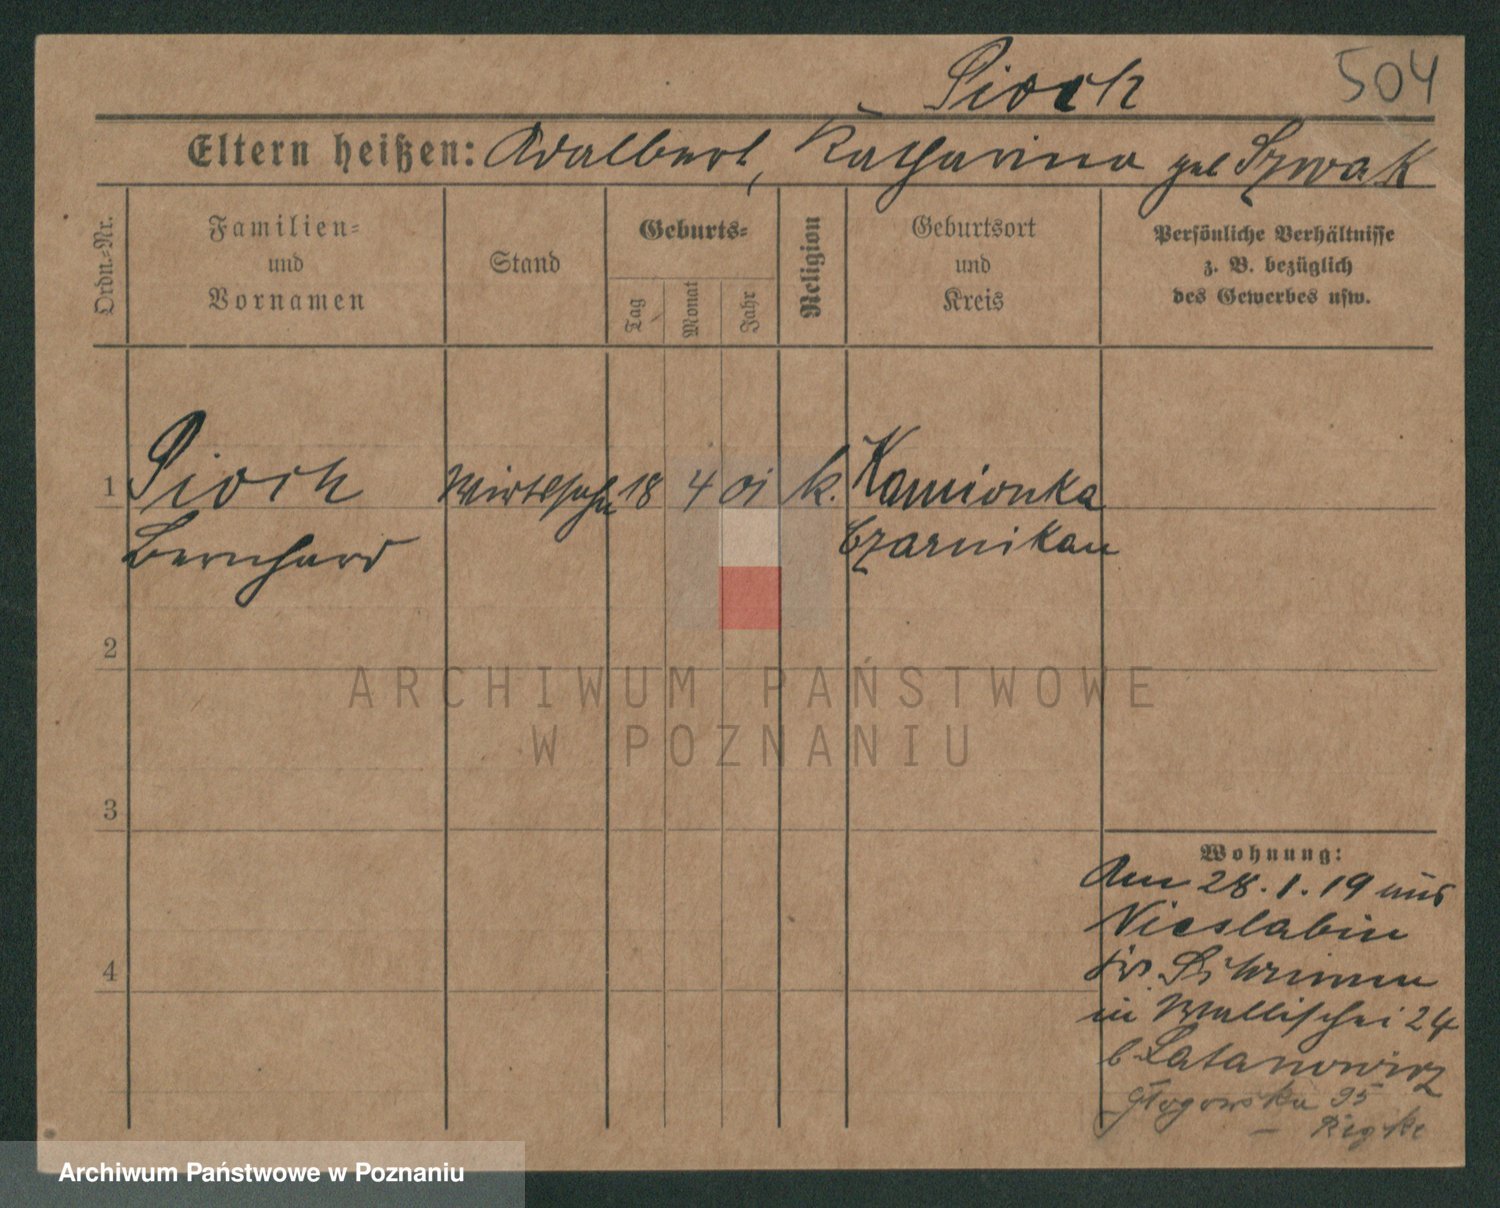 Pioch 504
Eltern heißen: Adalbert, Katharina geb Szwak
Ordn.-Nr.
Familien-
und
Vornamen
Stand
Geburts-
Tag
Monat
Jahr
Religion
Geburtsort
und
Kreis
Persönliche Verhältnisse
z. B. bezüglich
des Gewerbes usw.
1 Pioch Wirtssohn 18 4 01 k. Kamionka
Bernhard Czarnikau
2
3
4
Wohnung:
Am 28.1.19 aus
Nieslabin
Schrimm
in Wallischei 24
b. Latanowicz
Głogowska 95
ARCHIWUM PAŃSTWOWE
W POZNANIU
Archiwum Państwowe w Poznaniu